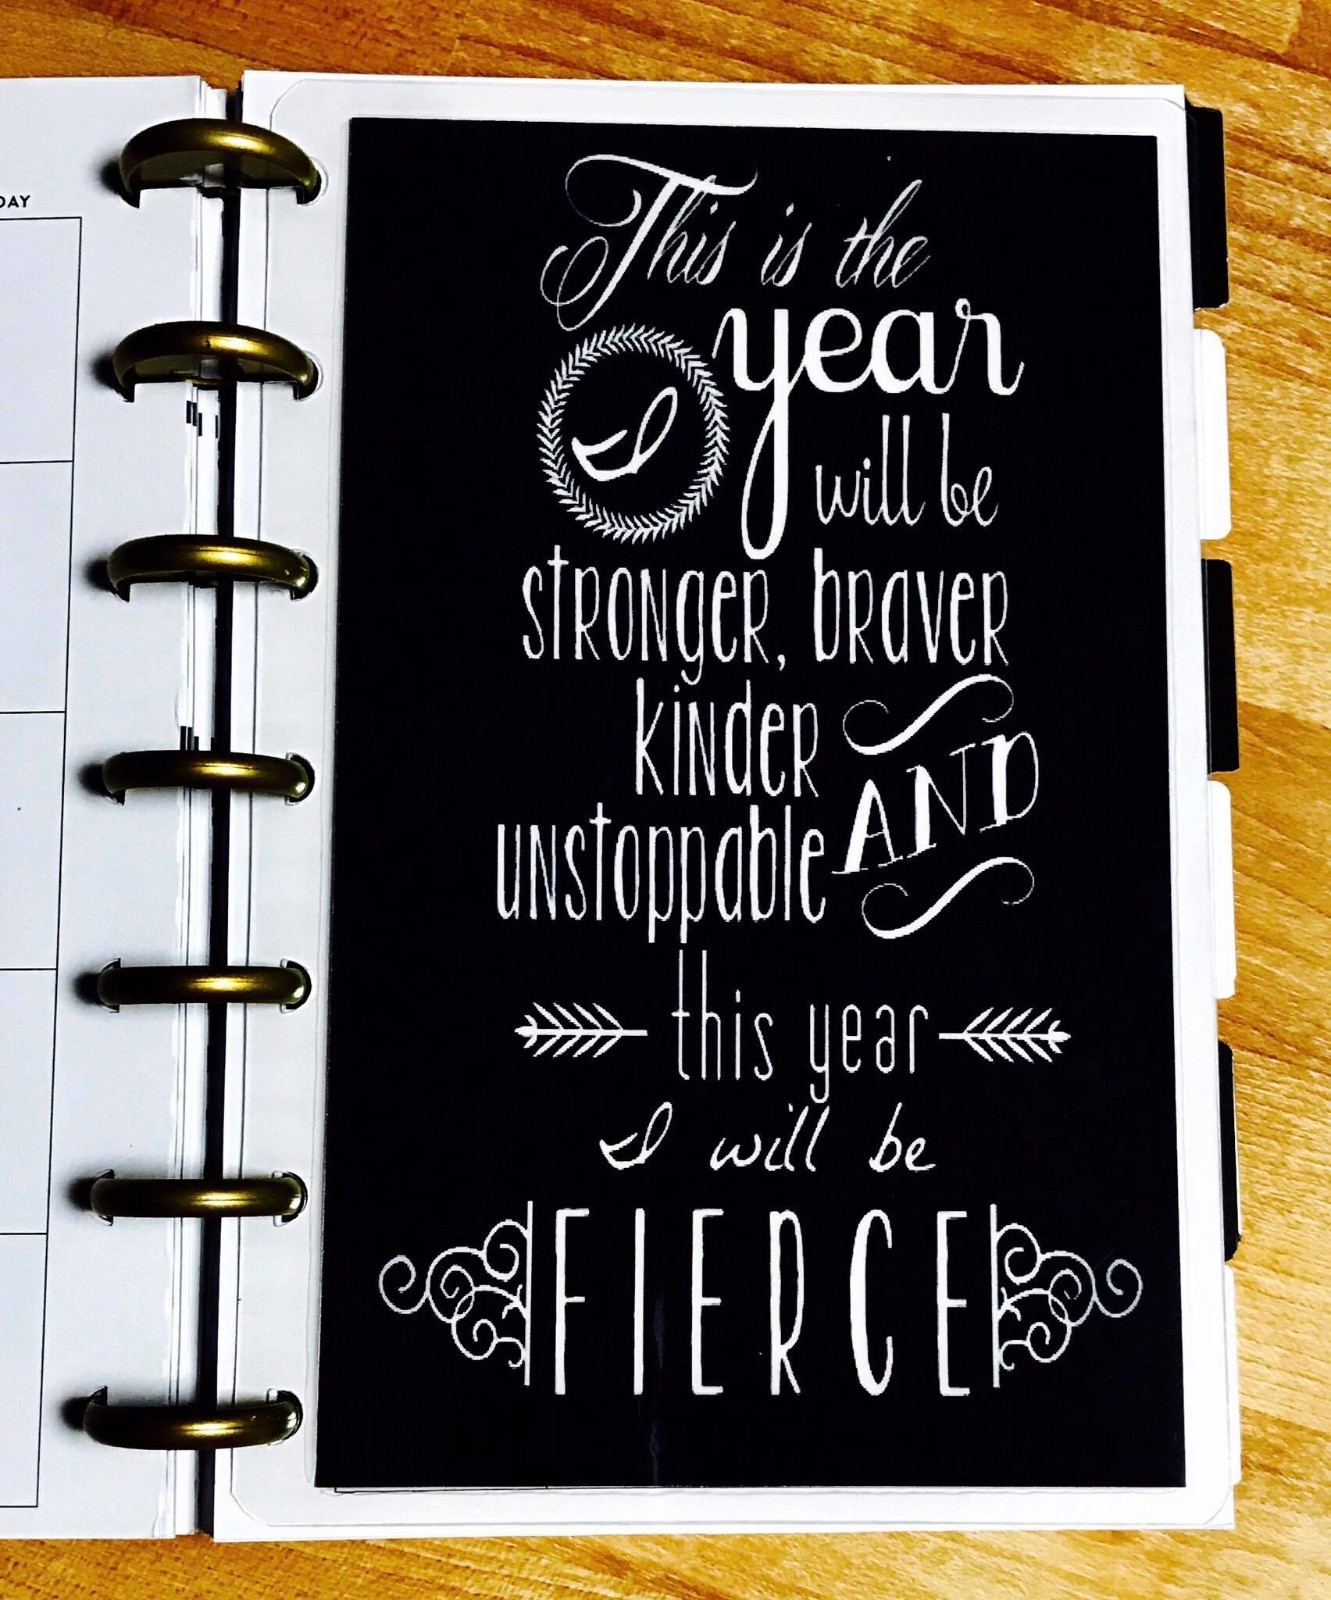 DAY
This is the
year
I will be
stronger, braver
kinder AND
unstoppable
this year
I will be
FIERCE